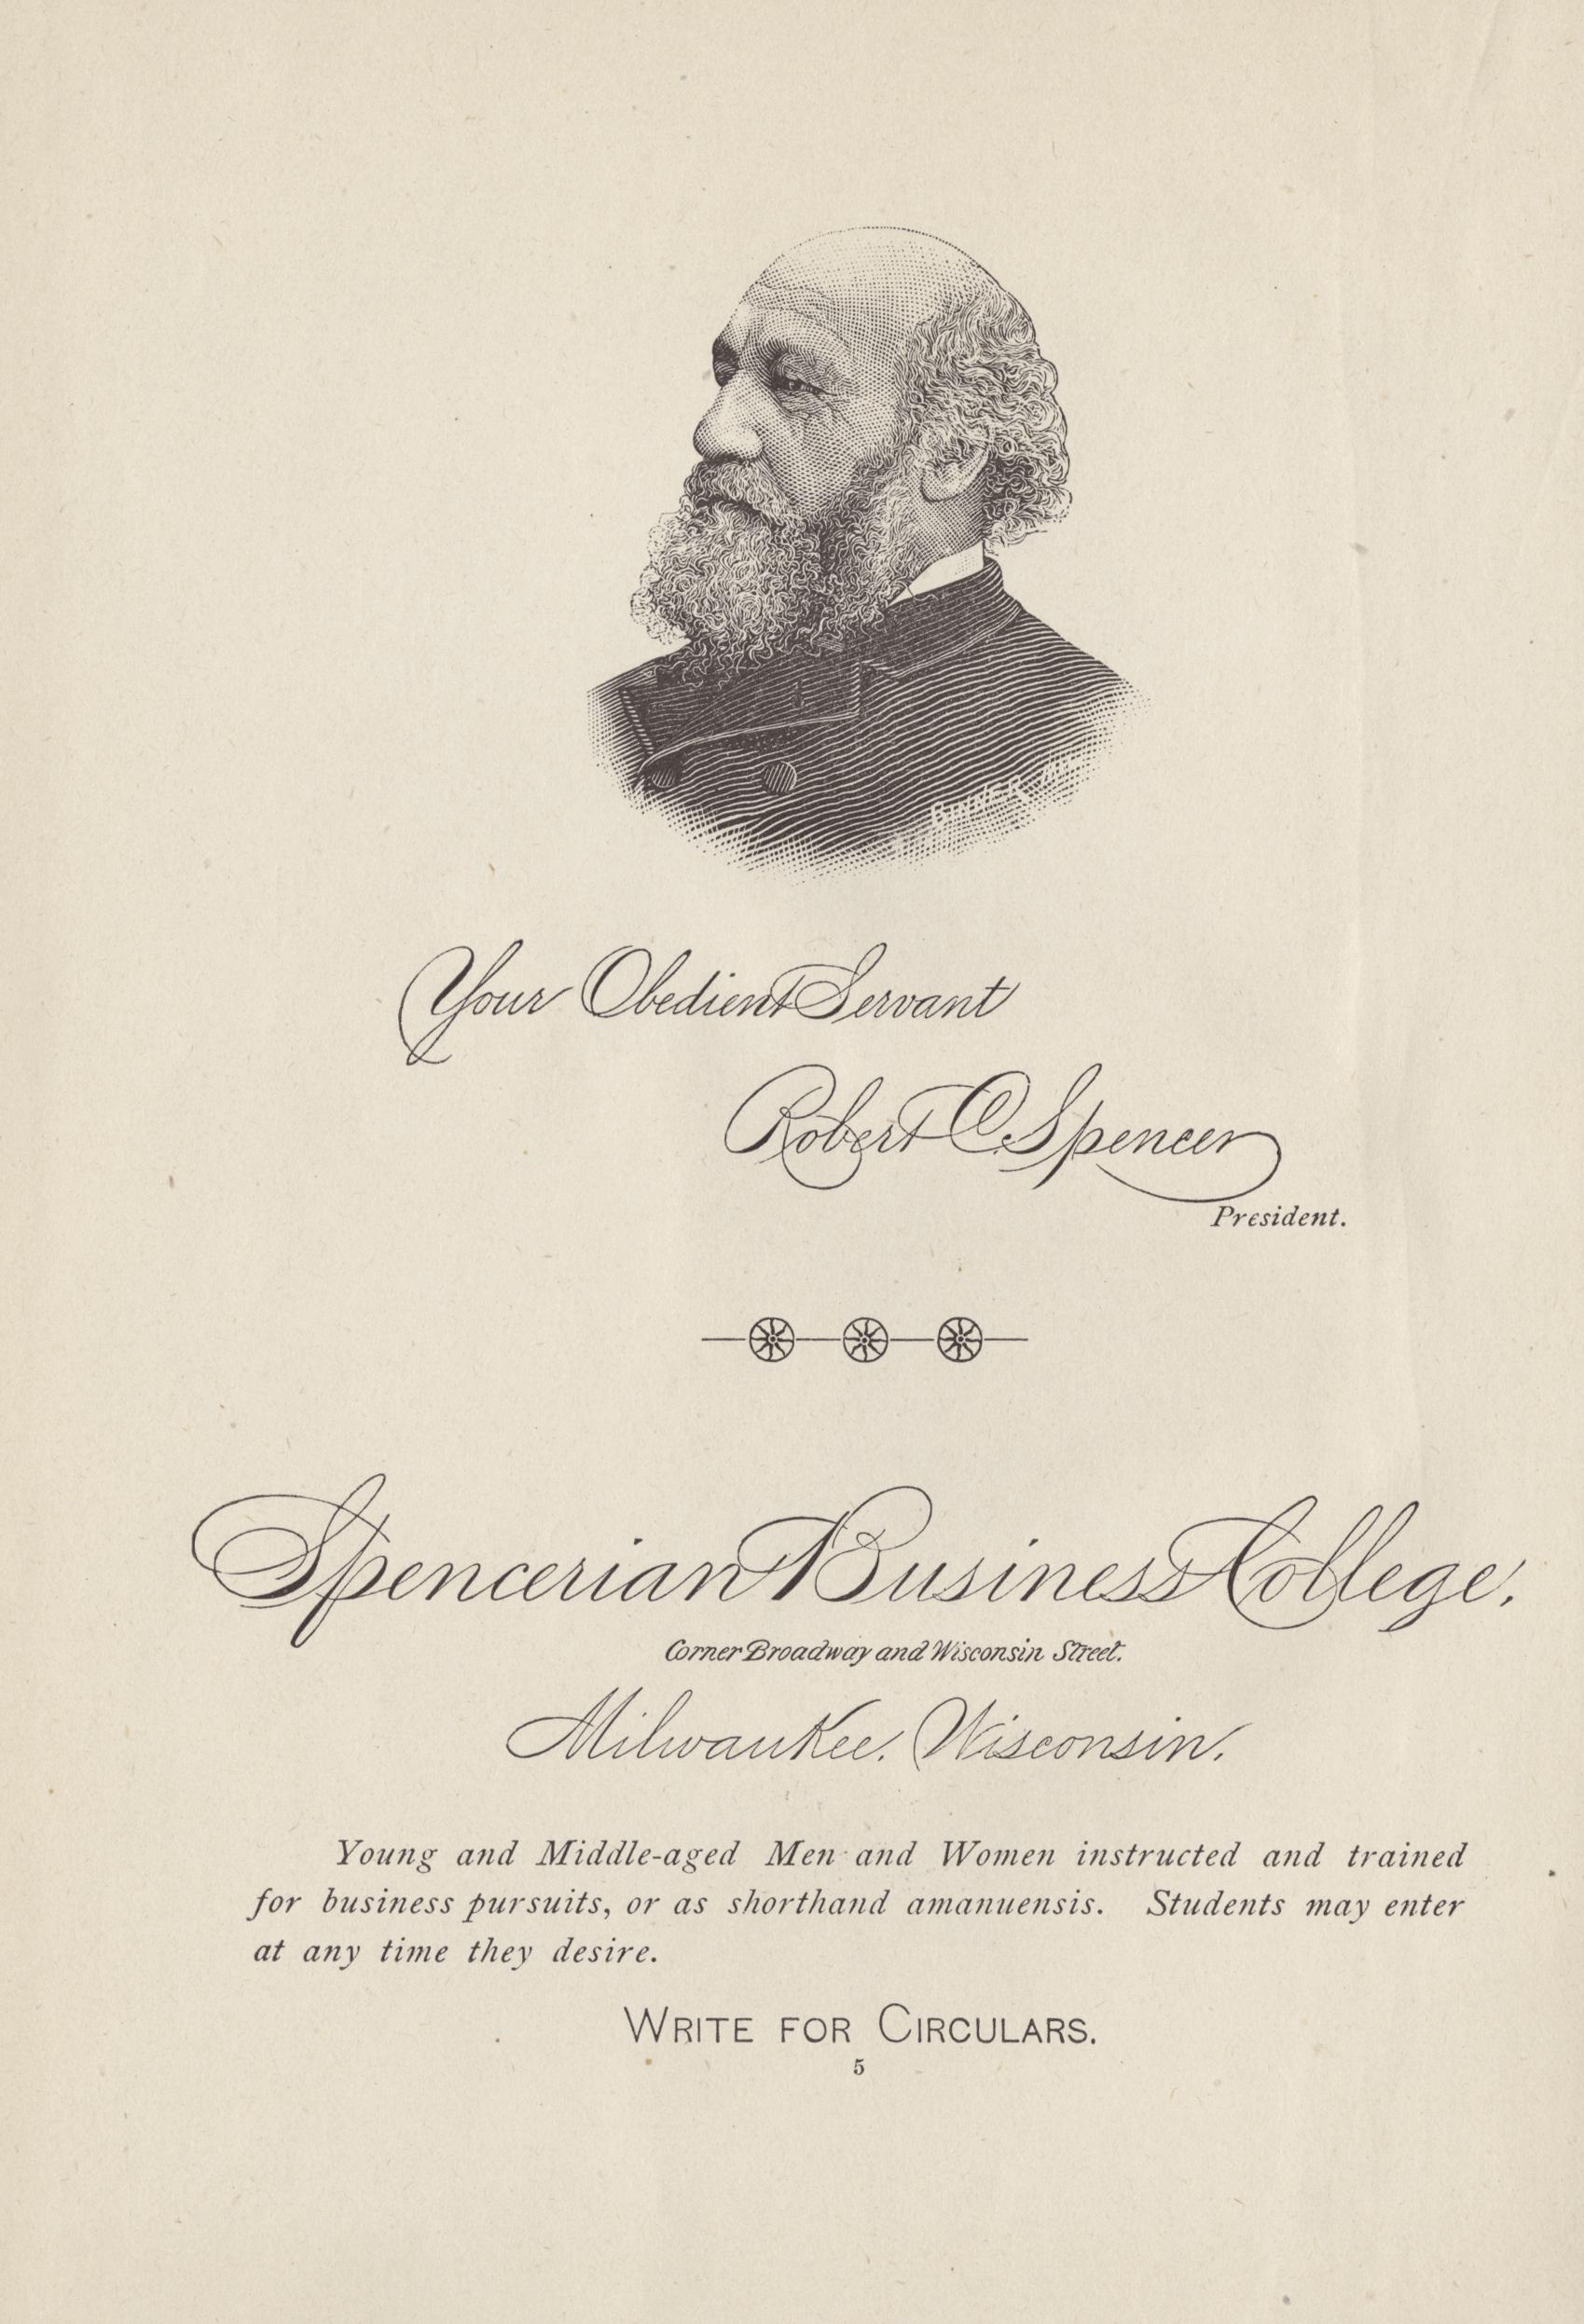 Your Obedient Servant
Robert C. Spencer
President.
Spencerian Business College.
Corner Broadway and Wisconsin Street.
Milwaukee. Wisconsin.
Young and Middle-aged Men and Women instructed and trained
for business pursuits, or as shorthand amanuensis. Students may enter
at any time they desire.
WRITE FOR CIRCULARS.
5